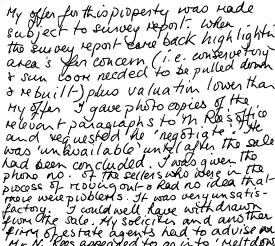 My offer for this property was made
subject to survey report. When
the survey report came back highlighting
area's for concern (i.e. conservatory
& sun room needed to be pulled down
& rebuilt) plus valuation lower than
my offer. I gave photocopies of the
relevant paragraphs to Mr Rees office
and requested he 'negotiate'. He
was 'unavailable' until after the sale
had been concluded. I was given the
phone no. of the sellers who were in the
process of moving out & had no idea that
there were problems. It was very unsatis-
factory. I could well have withdrawn
from the sale. My solicitor and another
firm of estate agents had to advise me
Mr N. Rees appeared to go into 'meltdown